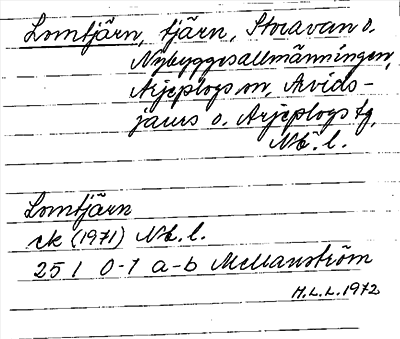 Lomtjärn, tjärn, Storavan o.
Nybyggesallmänningen,
Arjeplogs sn, Arvids-
jaurs o. Arjeplogs tg,
Nb. l.
Lomtjärn
ek (1971) Nb. l.
25 I 0-1 a-b McManström
H.L.L. 1972